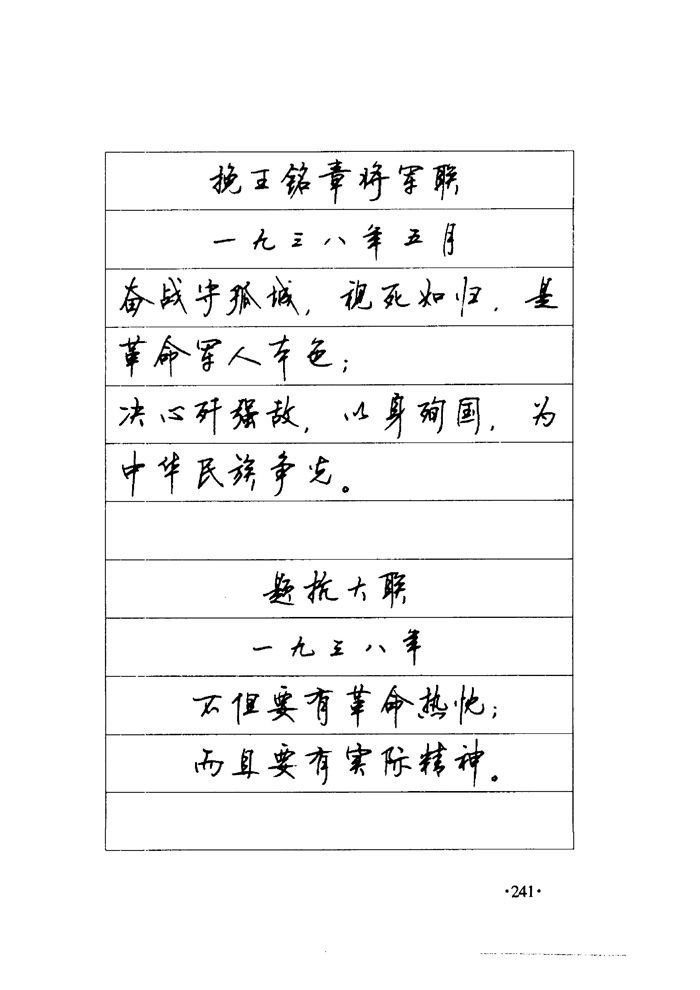 挽王铭章将军联
一九三八年五月
奋战守孤城，视死如归，是
革命军人本色；
决心歼强敌，以身殉国，为
中华民族争光。
题抗大联
一九三八年
不但要有革命热忱；
而且要有实际精神。
·241·